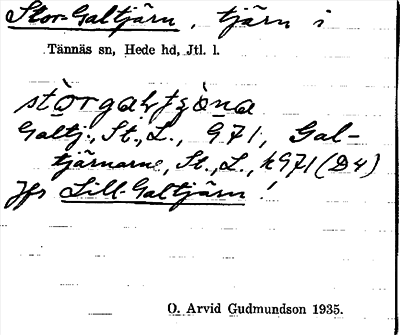 Stor-Galtjärn, tjärn i
Tännäs sn, Hede hd, Jtl. l.
Galtj., St., L., G 71, Gal-
tjärnarne, St., L., k G 71 (D 4)
Jfr Lill-Galtjärn!
O. Arvid Gudmundson 1935.